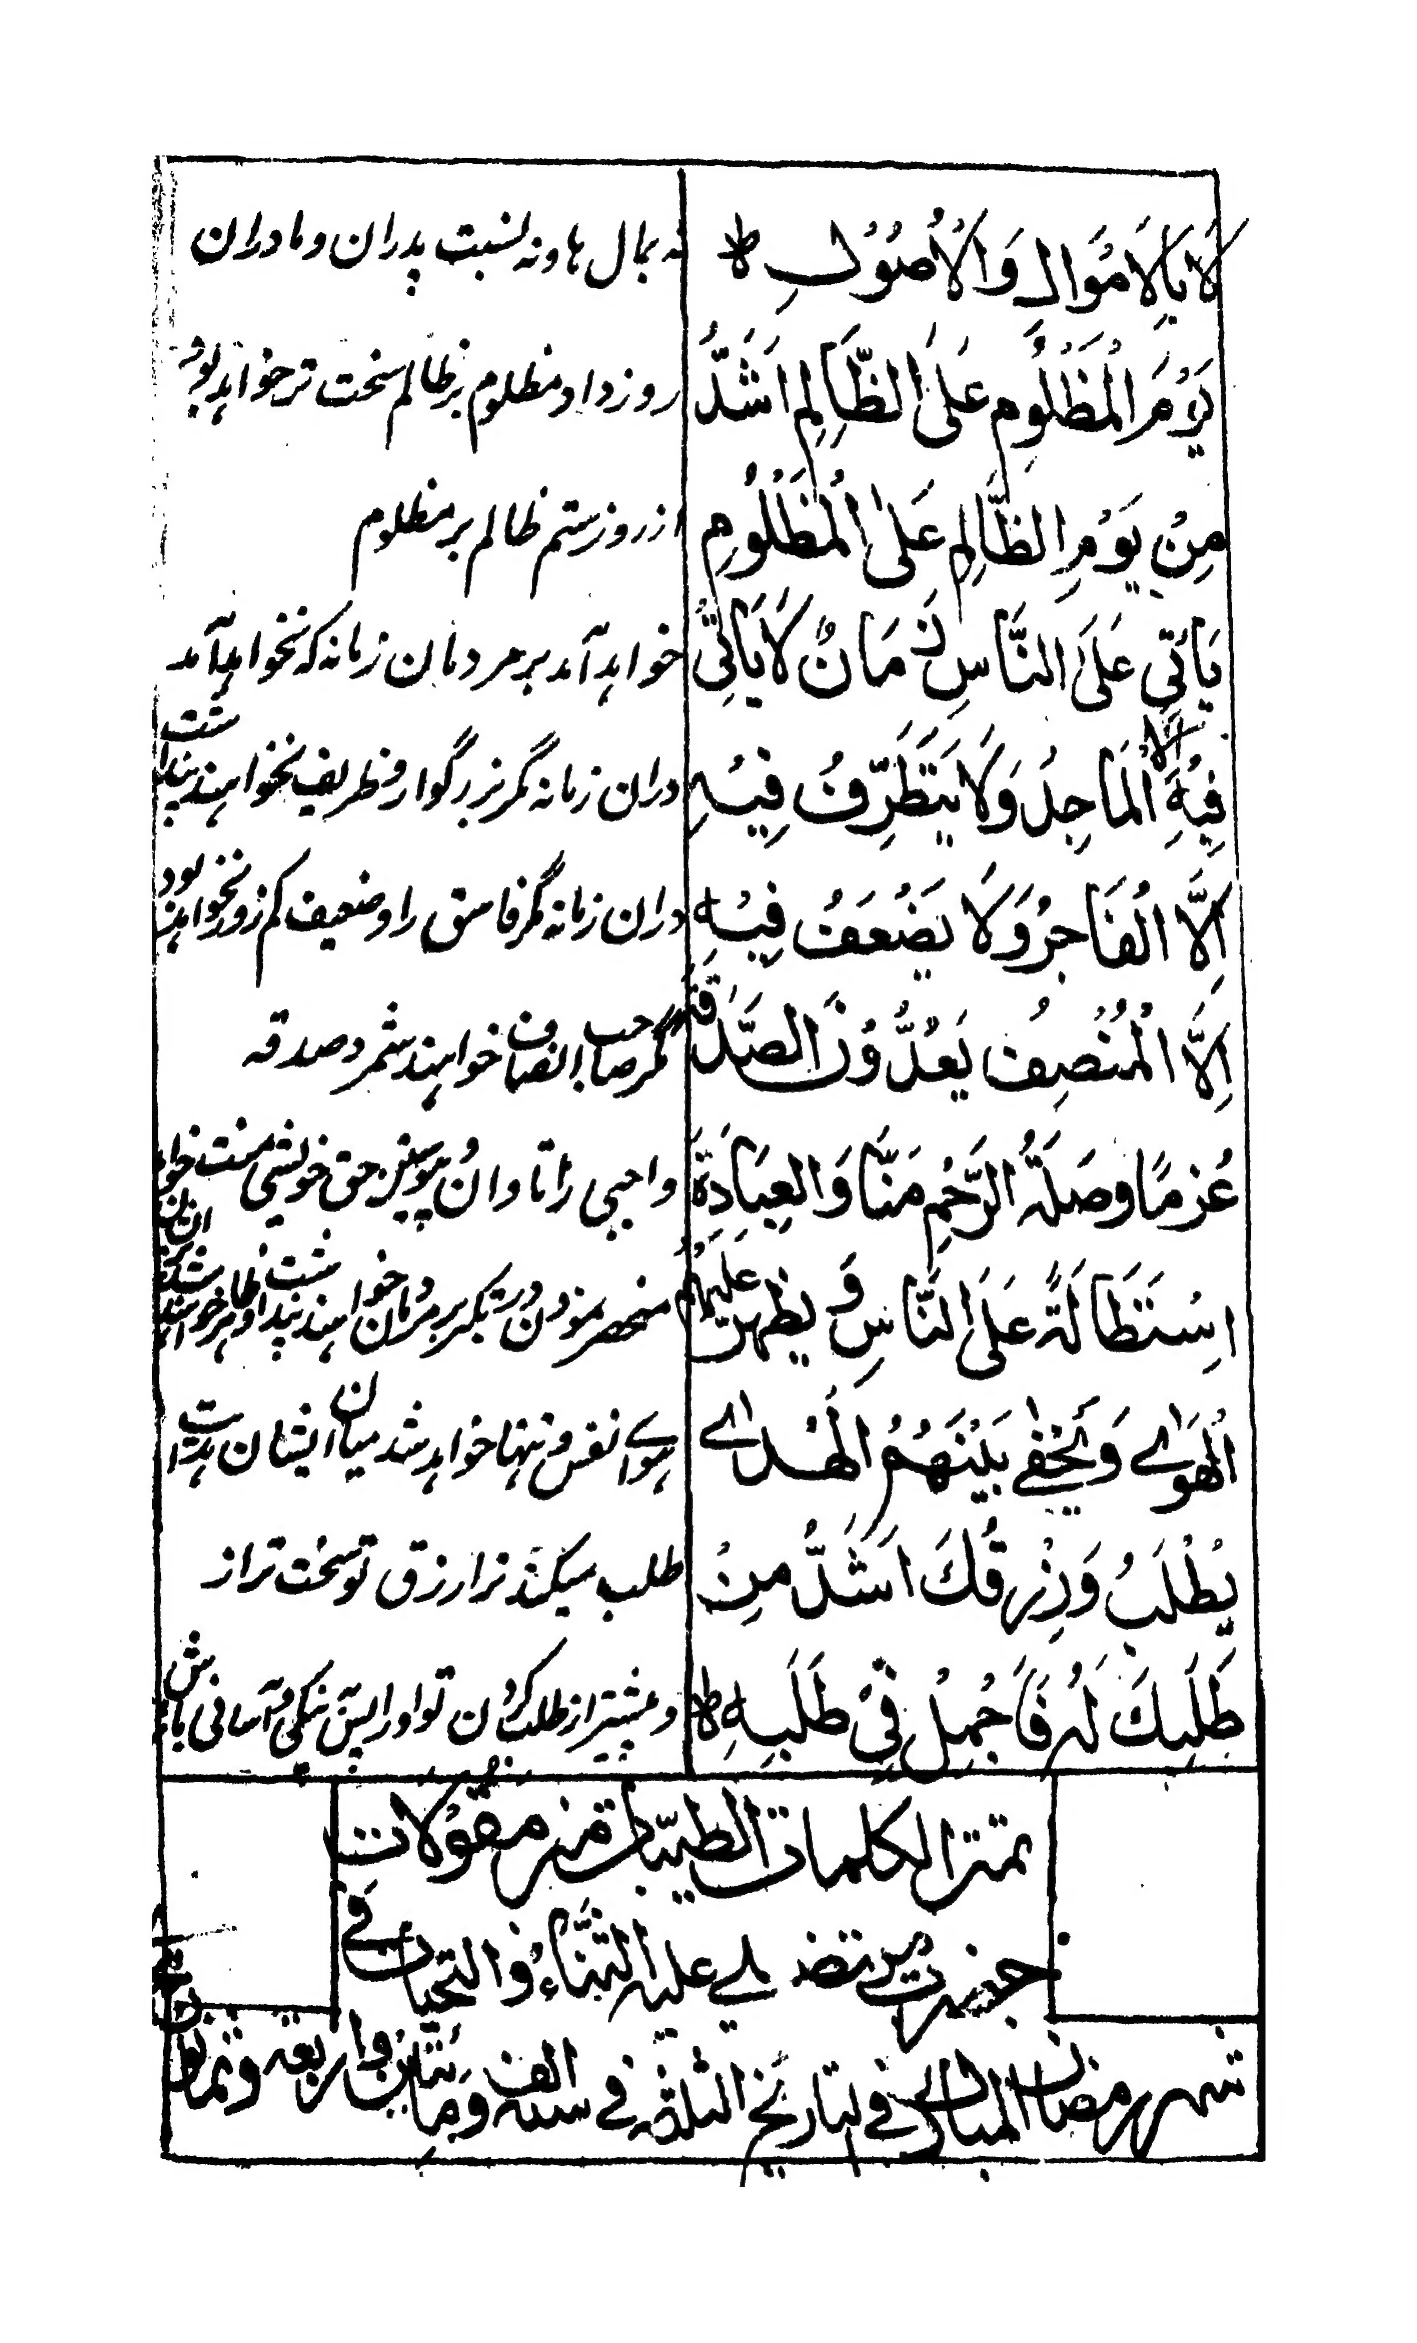 لَا بِالْاَمْوَالِ وَالْاُصُوْلِ ط
نه بمال ها ونه نسبت پدران و مادران
يَوْمُ الْمَظْلُوْمِ عَلَى الظَّالِمِ اَشَدُّ
روز داد مظلوم بر ظالم سخت تر خواهد بود
مِنْ يَوْمِ الظَّالِمِ عَلَى الْمَظْلُوْمِ
از روز ستم ظالم بر مظلوم
يَاْتِي عَلَى النَّاسِ زَمَانٌ لَا يَاْتِيْ
خواهد آمد بر مردمان زمانه که نخواهد آمد
فِيْهِ اِلَّا الْمَاجِدُ وَلَا يَتَظَرَّفُ فِيْهِ
دران زمانه مگر بزرگوار و ظریف نخواهند پنداشت
اِلَّا الْفَاجِرُ وَلَا يَضْعَفُ فِيْهِ
دران زمانه مگر فاسق را و ضعیف کم زور نخواهد بود
اِلَّا الْمُنْصِفُ يَعُدُّوْنَ الصَّدَقَةَ
مگر صاحب انصاف خواهند شمرد صدقه
غُرْمًا وَصِلَةَ الرَّحْمِ مَنًّا وَالْعِبَادَةَ
واجبی را تاوان و پیوستن حق خویشی منت
اِسْتِطَالَةً عَلَى النَّاسِ وَيَظْهَرُ عَلَيْهِمُ
بر مردمان خواهند پنداشت و ظاهر خواهد
الْهَوٰے وَيَخْفٰے بَيْنَهُمُ الْهُدٰے
هوائے نفس و پنهان خواهد شد میان ایشان هدایت
يُطْلَبُ وَرِزْقُكَ اَشَدُّ مِنْ
طلب میکند ترا رزق تو سخت تر از
طَلَبِكَ لَهُ فَاَجْمِلْ فِيْ طَلَبِهِ ط
و بیشتر از طلب کردن تو او را پس نیکی و آسانی باش
تمت الکلمات الطیبات من مقولات
حضرت مرتضے علیه الثناء والتحیات فے
شهر رمضان المبارک فے التاریخ الثلثة فے سنه الف ومائتین واربعة وثمانون